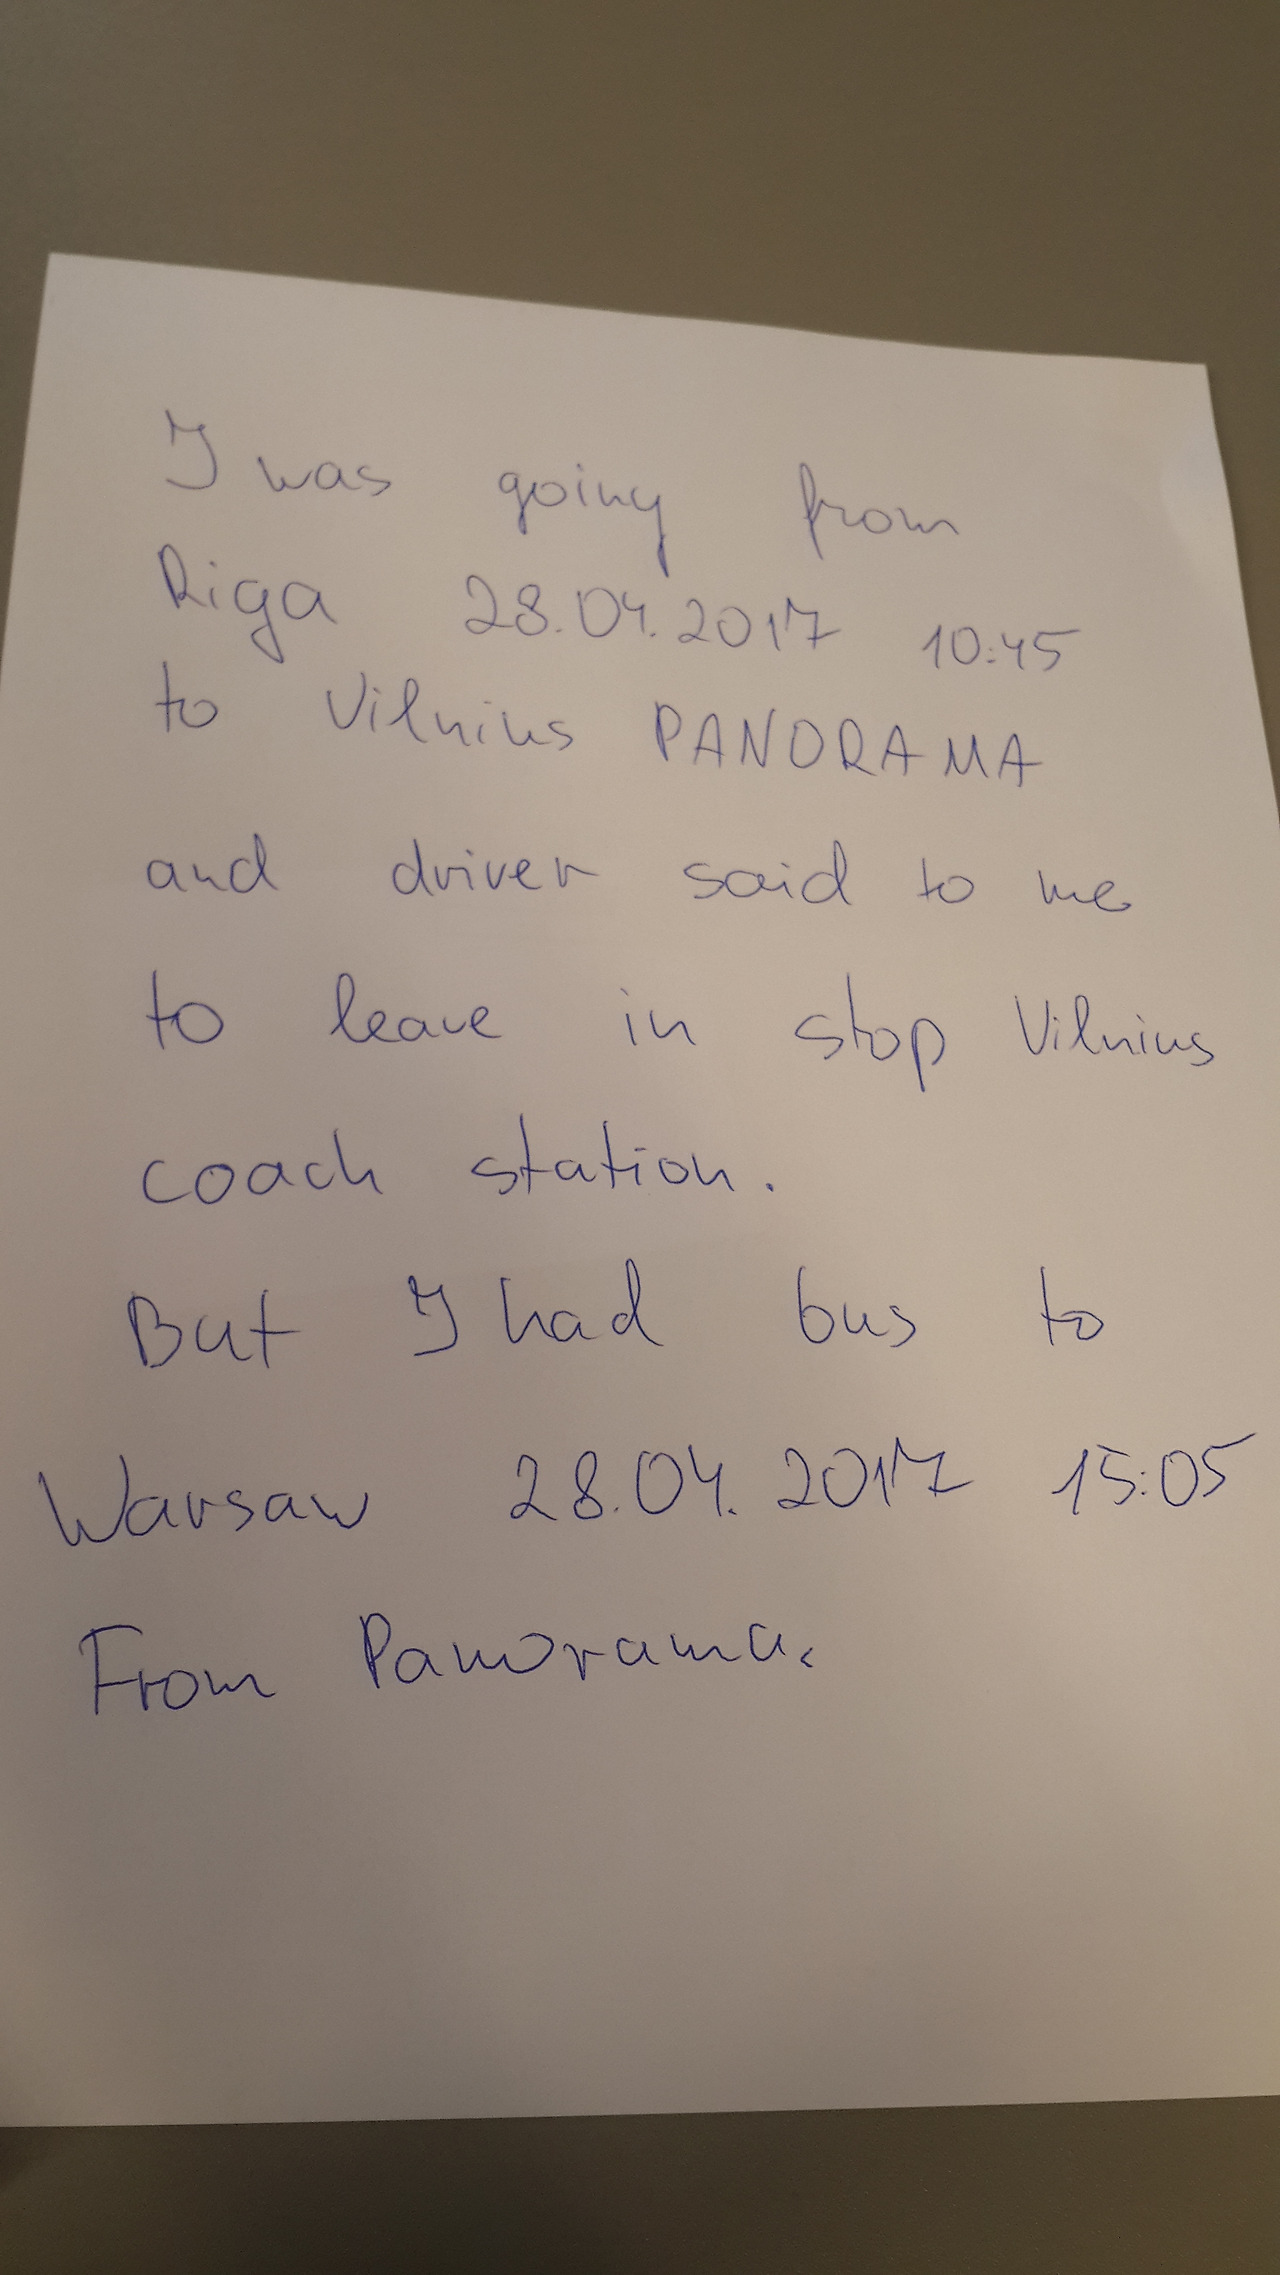 I was going from
Riga 28.04.2017 10:45
to Vilnius PANORAMA
and driver said to me
to leave in stop Vilnius
coach station.
But I had bus to
Warsaw 28.04.2017 15:05
From Panorama.